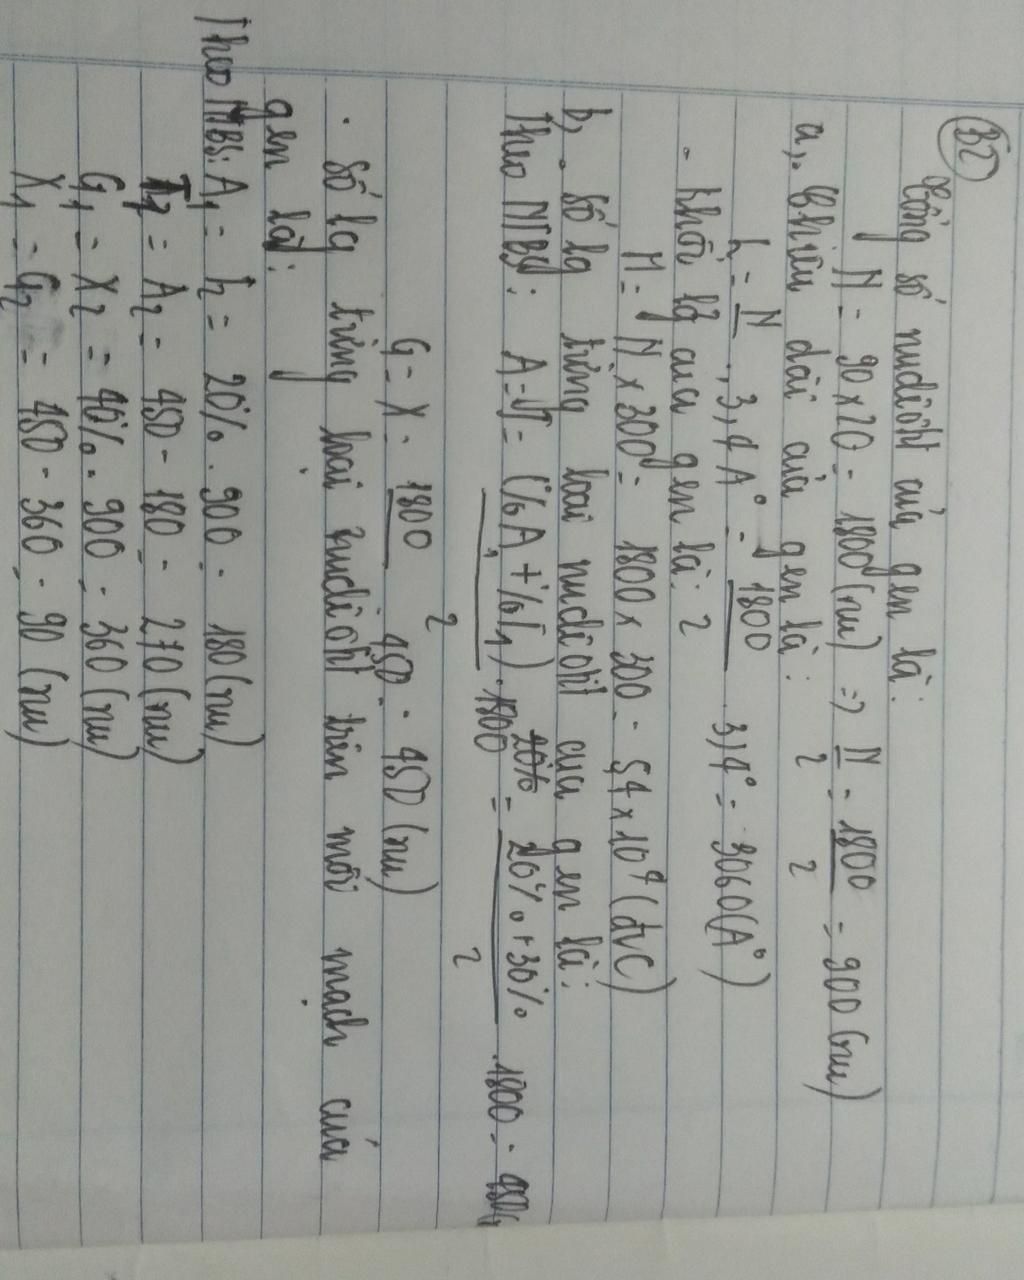 B2
Tổng số nuclêôtit của gen là:
N = 90 x 20 = 1800 (nu) => N/2 = 1800/2 = 900 (nu)
a, . Chiều dài của gen là:
L = N/2 . 3,4 A° = 1800/2 . 3,4° = 3060 (A°)
. Khối lg của gen là:
M = N x 300 = 1800 x 300 = 54 x 10⁴ (đvC)
b, . Số lg từng loại nuclêôtit của gen là:
Theo NTBS: A = T = (%A₁ + %T₁)/2 . 1800 = 20% + 30%/2 . 1800 = 450
G = X = 1800/2 - 450 = 450 (nu)
. Số lg từng loại nuclêôtit trên mỗi mạch của
gen là:
Theo NTBS: A₁ = T₂ = 20% . 900 = 180 (nu)
T₁ = A₂ = 450 - 180 = 270 (nu)
G₁ = X₂ = 40% . 900 = 360 (nu)
X₁ = G₂ = 450 - 360 = 90 (nu)